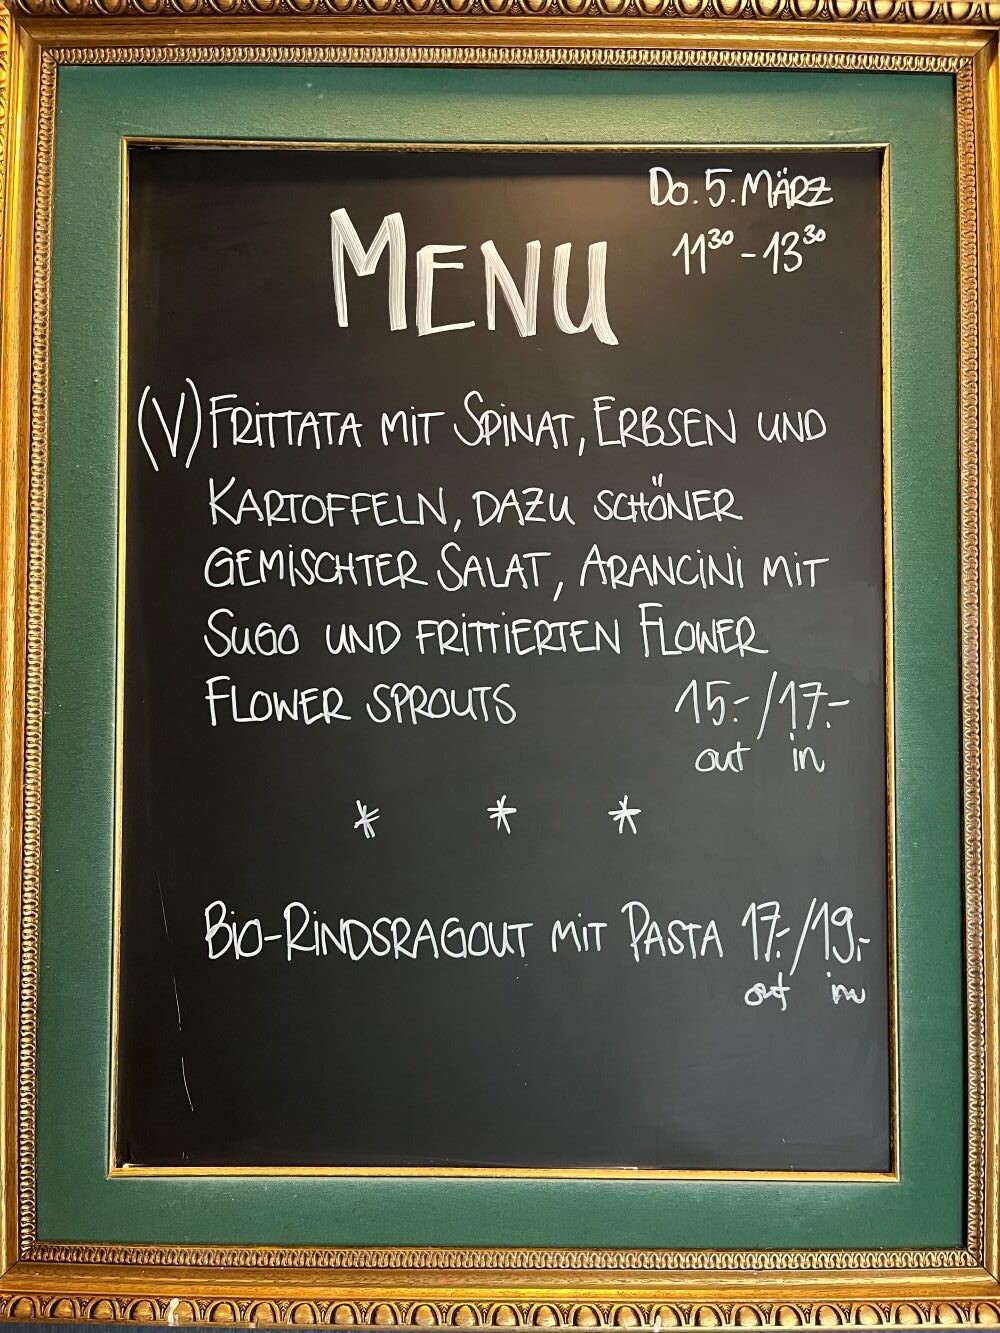 Do. 5. März
11³⁰ - 13³⁰
MENU
(V) FRITTATA MIT SPINAT, ERBSEN UND
KARTOFFELN, DAZU SCHÖNER
GEMISCHTER SALAT, ARANCINI MIT
SUGO UND FRITTIERTEN FLOWER
FLOWER SPROUTS 15.-/17.-
out in
* * *
BIO-RINDSRAGOUT MIT PASTA 17.-/19.-
out in